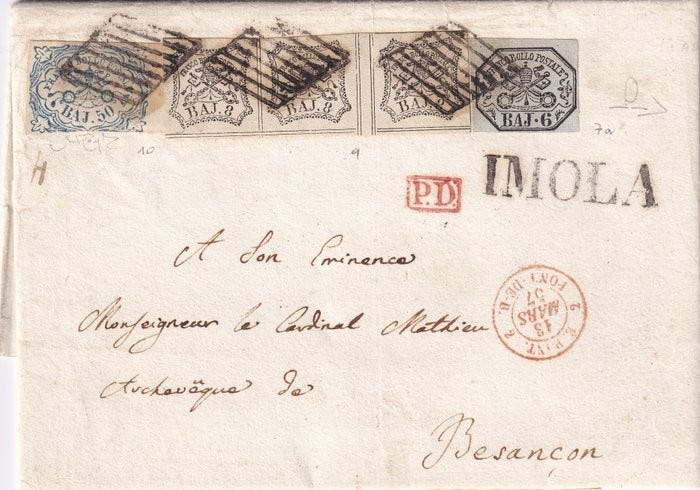 BAJ. 50
BAJ. 8
BAJ. 8
BAJ. 8
FRANCO BOLLO POSTALE
BAJ. 6
10
9
7a
P.D.
IMOLA
A Son Eminence
Monseigneur le Cardinal Mathieu
Archevêque de
Besançon
E. PONT. 2 PONT-DE-B. 2
18
MARS
57